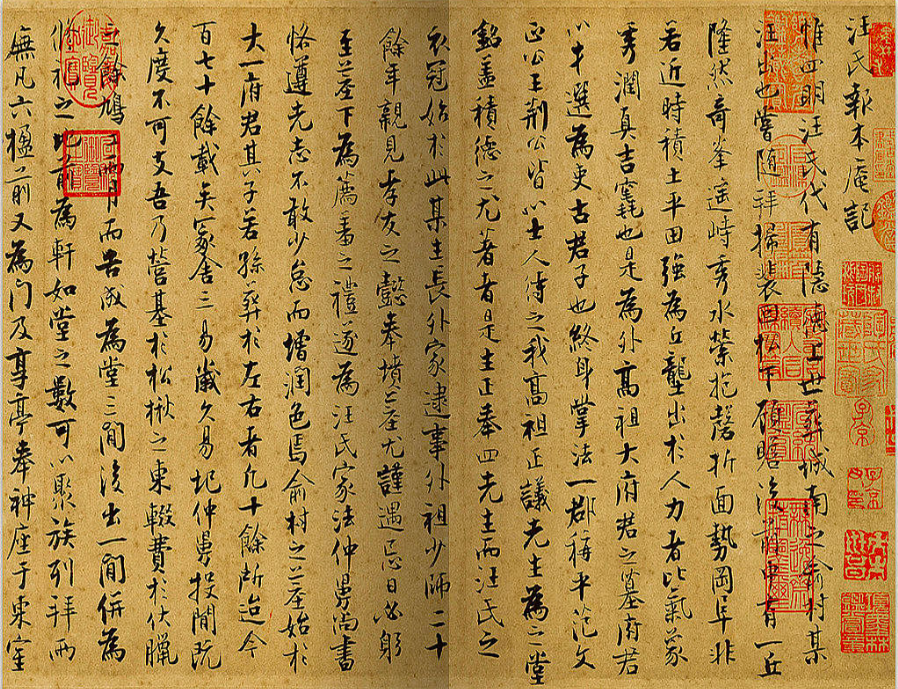 汪氏報本庵記
惟四明汪氏代有隱德上世葬城南之俞村某
汪出也嘗隨拜掃裴回松下顧瞻後壠中有一丘
隆然奇峯遥峙秀水縈抱磬折面勢岡阜非
若近時積土平田強為丘壟出於人力者比氣蒙
秀潤真吉竁也是為外高祖大府君之墓府君
以才選為吏古君子也終身掌法一郡稱平范文
正公王荆公皆以士人待之我高祖正議先生為之堂
銘盖積德之尤著者是生正奉四先生而汪氏之
衣冠始於此某生長外家逮事外祖少師二十
餘年親見孝友之懿奉墳茔尤謹遇忌日必躬
至茔下為薦羞之禮遂為汪氏家法仲舅尚書
恪遵先志不敢少怠而增潤色焉俞村之茔始於
大一府君其子若孫葬於左右者凡十餘所迨今
百七十餘載矣冢舍三易歲久易圮仲舅投閒既
久度不可支吾乃營基於松楸之東輟費於伏臘
之餘鳩工兩月而告成為堂三間後出一間併為
祀之地前為軒如堂之數可以聚族列拜兩
廡凡六楹前又為門及享亭奉神座于東室